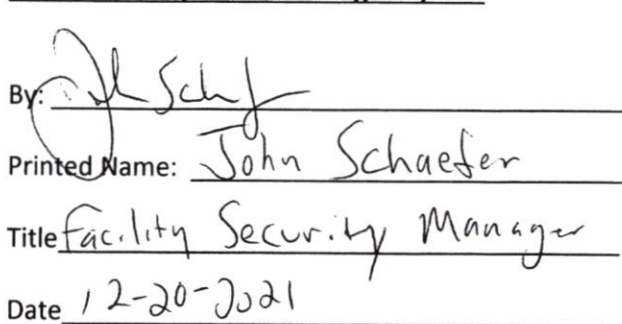 By: John Schaefer
Printed Name: John Schaefer
Title Facility Security Manager
Date 12-20-2021